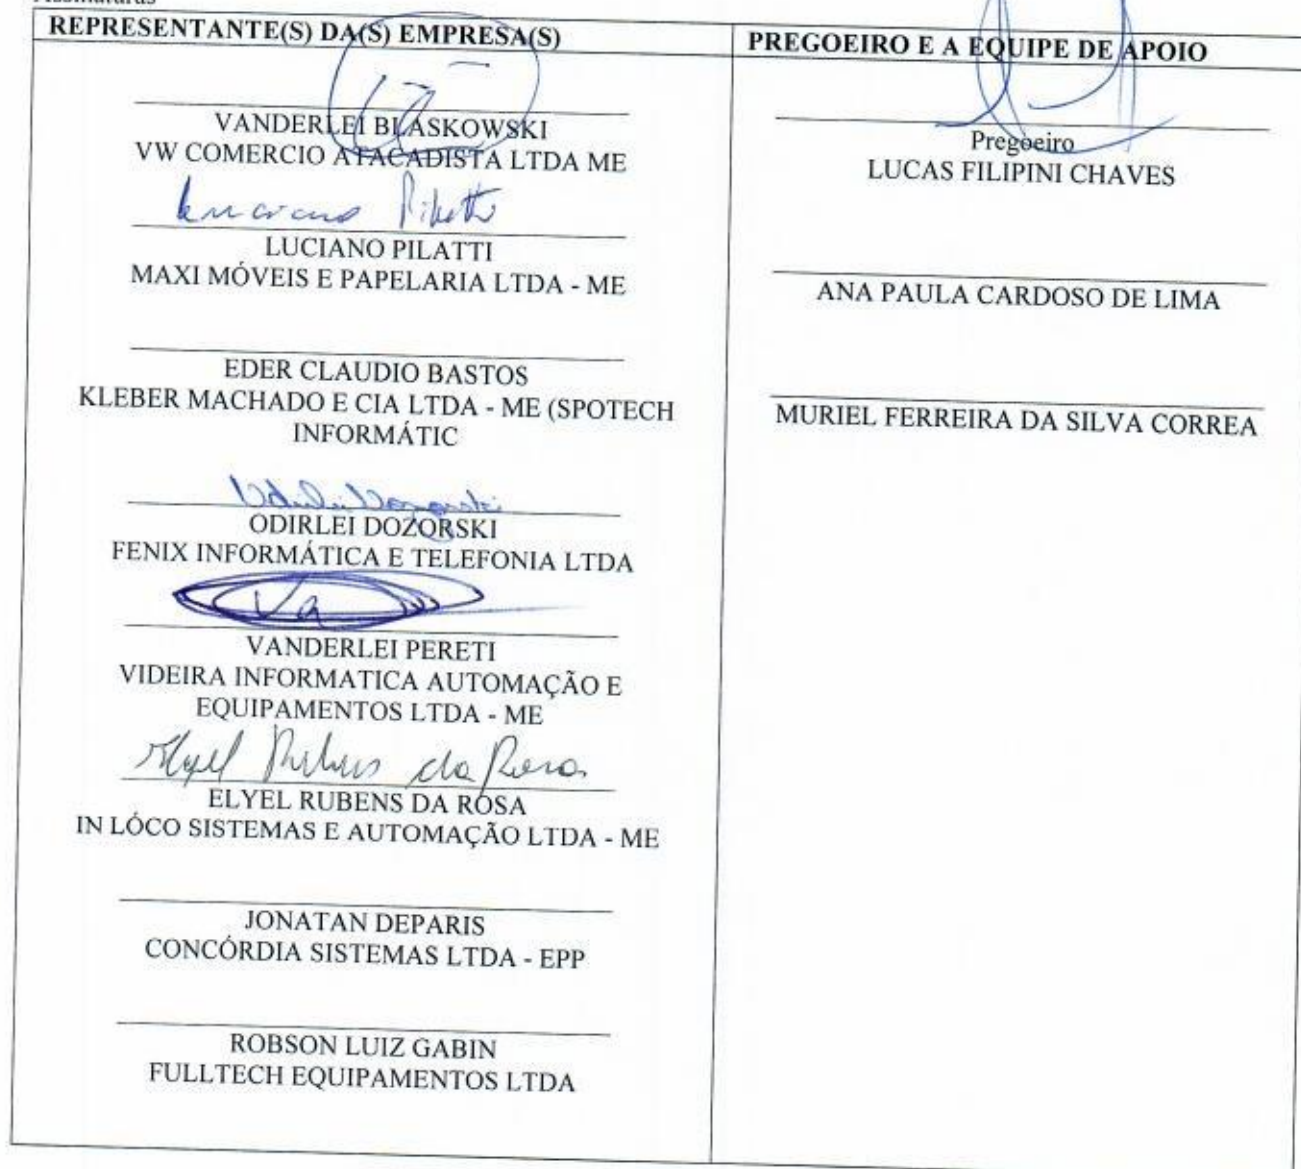 Assinaturas
REPRESENTANTE(S) DA(S) EMPRESA(S)
VANDERLEI BLASKOWSKI
VW COMERCIO ATACADISTA LTDA ME
Luciano Pilatti
LUCIANO PILATTI
MAXI MÓVEIS E PAPELARIA LTDA - ME
EDER CLAUDIO BASTOS
KLEBER MACHADO E CIA LTDA - ME (SPOTECH
INFORMÁTIC
ODIRLEI DOZORSKI
FENIX INFORMÁTICA E TELEFONIA LTDA
VANDERLEI PERETI
VIDEIRA INFORMATICA AUTOMAÇÃO E
EQUIPAMENTOS LTDA - ME
Elyel Rubens da Rosa
ELYEL RUBENS DA ROSA
IN LÓCO SISTEMAS E AUTOMAÇÃO LTDA - ME
JONATAN DEPARIS
CONCÓRDIA SISTEMAS LTDA - EPP
ROBSON LUIZ GABIN
FULLTECH EQUIPAMENTOS LTDA
PREGOEIRO E A EQUIPE DE APOIO
Pregoeiro
LUCAS FILIPINI CHAVES
ANA PAULA CARDOSO DE LIMA
MURIEL FERREIRA DA SILVA CORREA